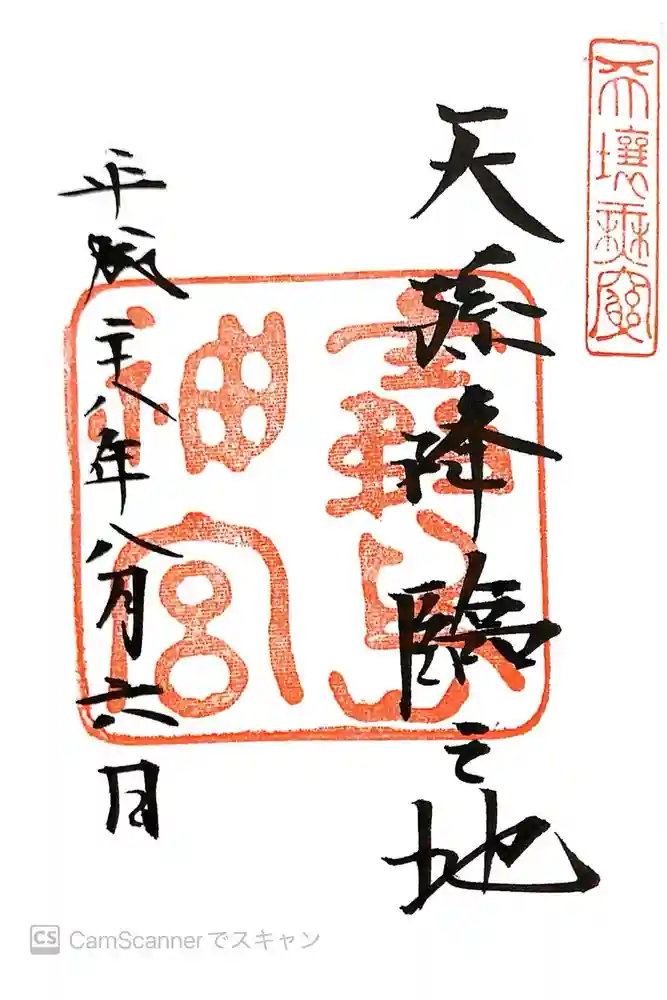 天壤無窮
天孫降臨之地
霧島神宮
平成二十八年八月六日
CS CamScannerでスキャン